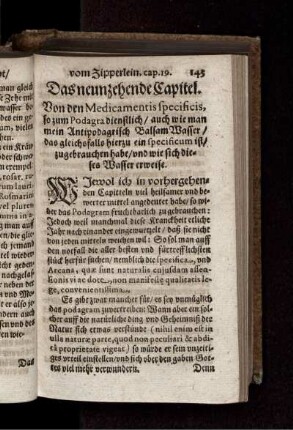 vom Zipperlein. cap. 19. 143
Das neunzehende Capitel.
Von den Medicamentis specificis,
so zum Podagra dienstlich / auch wie man
mein Antipodagrisch Balsam Wasser /
das gleichsfalls hierzu ein specificum ist /
zugebrauchen habe / und wie sich die-
ses Wasser erweise.
Wiewol ich in vorhergehen-
den Capiteln viel heilsamer und be-
werter mittel angedeutet habe / so wi-
der das Podagram fruchtbarlich zugebrauchen:
Jedoch weil manchmal diese Kranckheit etliche
Jahr nach einander eingewurtzelt / daß sie nicht
von jeden mitteln weichen wil: So sol man auff
den vorfall die aller besten und fürtrefflichsten
stück herfür suchen / nemblich die specifica, und
Arcana, quæ sunt naturalis cujusdam
non manifestæ qualitatis
convenientissima.
Es gibt zwar mancher für / es sey unmüglich
das podagram zuvertreiben: Wann aber ein sol-
cher auff die natürliche ding und Geheimnuß der
Natur sich etwas verstünde (nihil enim est in
ulla naturæ parte, quod non peculiari & abdi-
tâ proprietate vigeat) so würde er sein unzeiti-
ges urteil einstellen / und sich ob den gaben Got-
tes viel mehr verwundern. Denn
Das